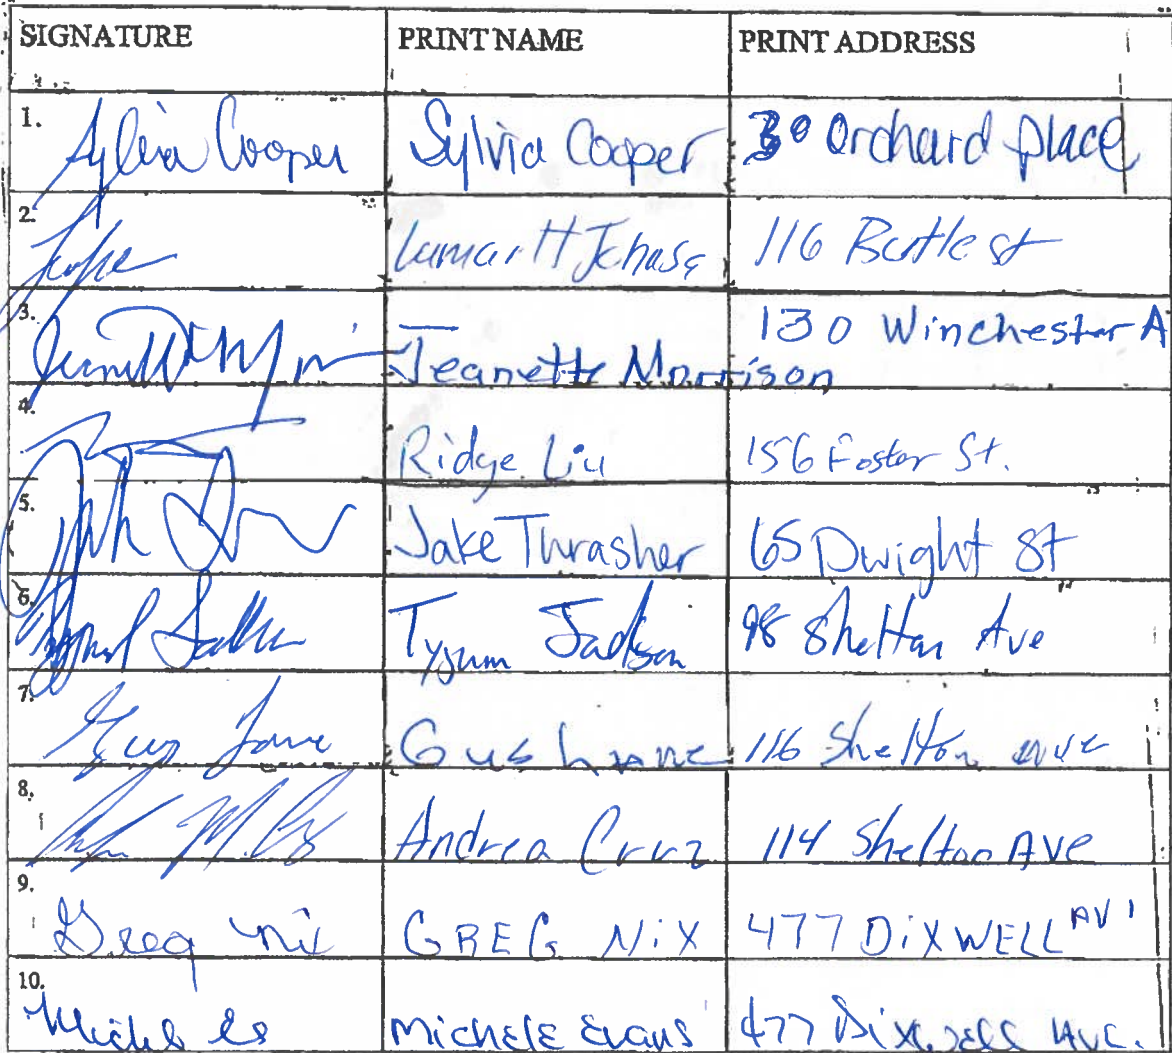 SIGNATURE PRINT NAME PRINT ADDRESS
1. Sylvia Cooper Sylvia Cooper 30 Orchard place
2. 116 Butle st
3. Jeanette Morrison 130 Winchester A
4. Ridge Liu 156 Foster St.
5. Jake Thrasher 65 Dwight St
6. Jackson 98 Shelton Ave
7. Gus 116 Shelton ave
8. Andrea Cruz 114 Shelton AVe
9. Greg Nix GREG NiX 477 DiXWELL AV
10. MicheLE Evans 477 Dixwell Ave.